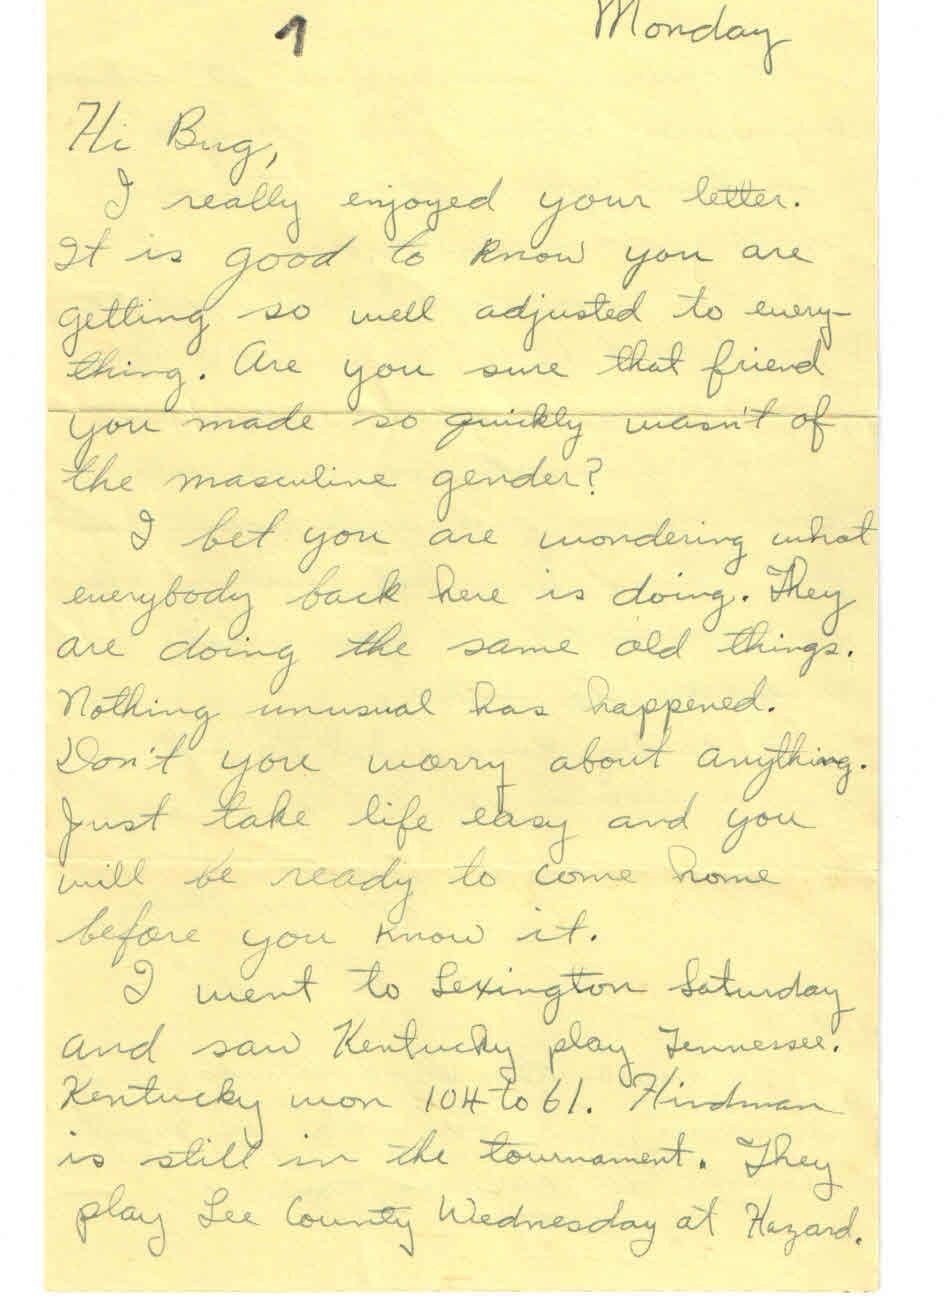 1 Monday
Hi Bug,
I really enjoyed your letter.
It is good to know you are
getting so well adjusted to every-
thing. Are you sure that friend
you made so quickly wasn't of
the masculine gender?
I bet you are wondering what
everybody back here is doing. They
are doing the same old things.
Nothing unusual has happened.
Don't you worry about anything.
Just take life easy and you
will be ready to come home
before you know it.
I went to Lexington Saturday
and saw Kentucky play Tennessee.
Kentucky won 104 to 61. Hindman
is still in the tournament. They
play Lee County Wednesday at Hazard.